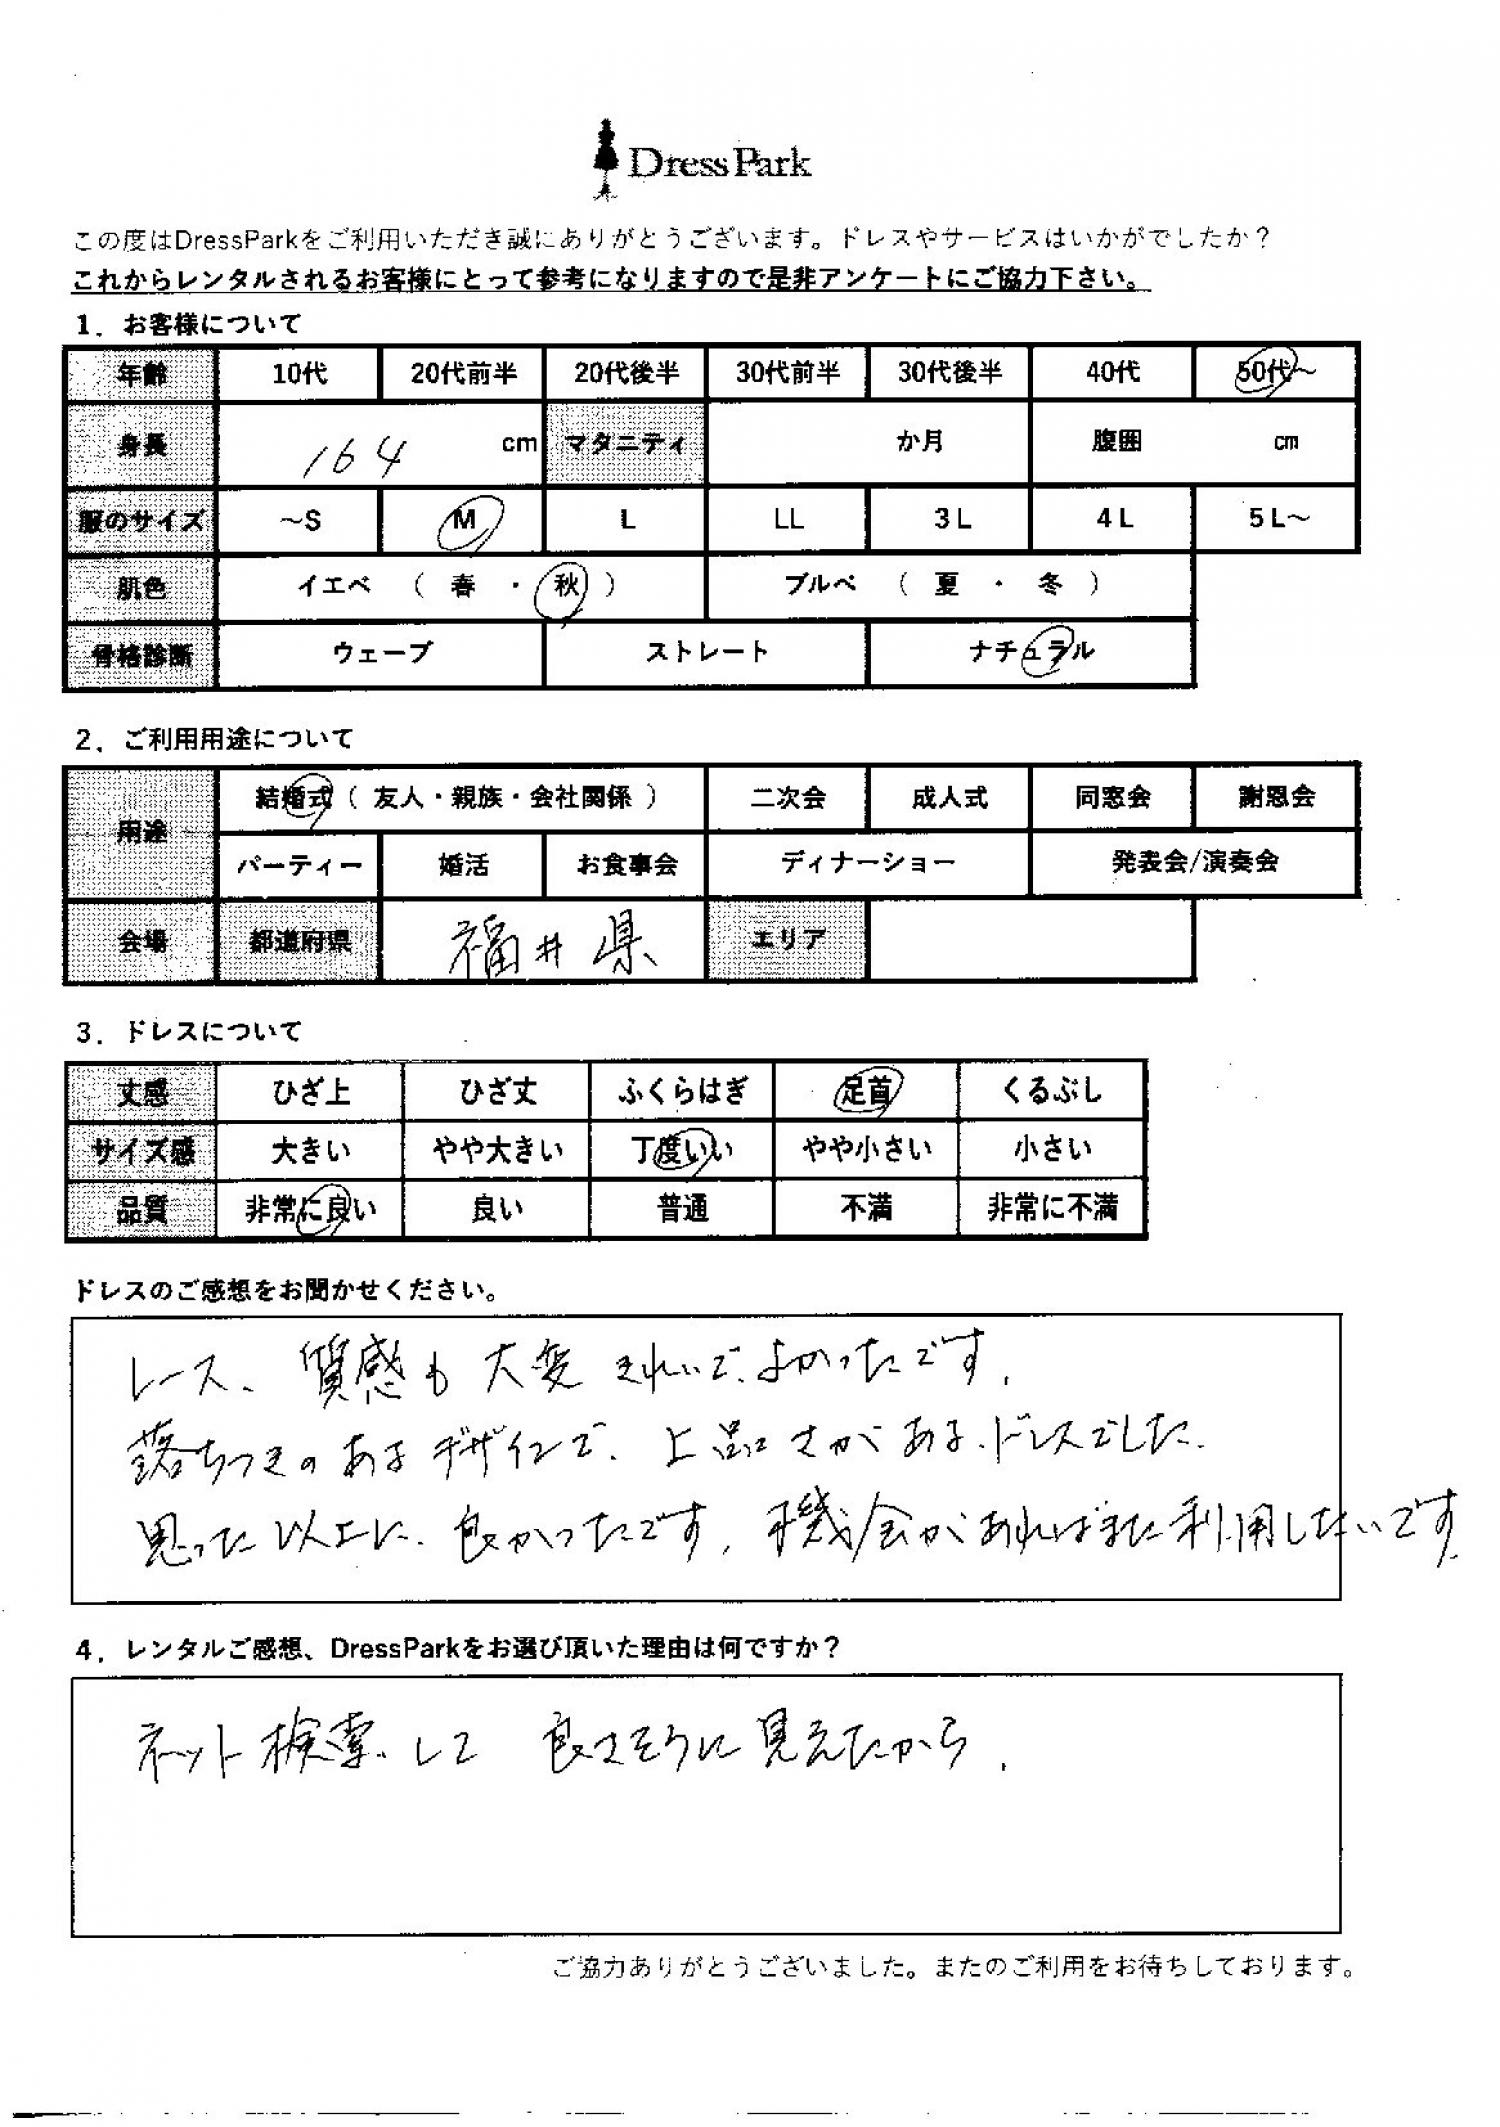 DressPark
この度はDressParkをご利用いただき誠にありがとうございます。ドレスやサービスはいかがでしたか？
これからレンタルされるお客様にとって参考になりますので是非アンケートにご協力下さい。
1．お客様について
年齢 10代 20代前半 20代後半 30代前半 30代後半 40代 50代～
身長 164 cm マタニティ か月 腹囲 cm
服のサイズ ～S M L LL 3L 4L 5L～
肌色 イエベ （ 春 ・ 秋 ） ブルベ （ 夏 ・ 冬 ）
骨格診断 ウェーブ ストレート ナチュラル
2．ご利用用途について
用途 結婚式（ 友人・親族・会社関係 ） 二次会 成人式 同窓会 謝恩会
パーティー 婚活 お食事会 ディナーショー 発表会/演奏会
会場 都道府県 福井県 エリア
3．ドレスについて
丈感 ひざ上 ひざ丈 ふくらはぎ 足首 くるぶし
サイズ感 大きい やや大きい 丁度いい やや小さい 小さい
品質 非常に良い 良い 普通 不満 非常に不満
ドレスのご感想をお聞かせください。
レース、質感も大変きれいで、よかったです。
落ちつきのあるデザインで、上品さがある、ドレスでした。
思った以上に、良かったです。機会があればまた利用したいです。
4．レンタルご感想、DressParkをお選び頂いた理由は何ですか？
ネット検索して 良さそうに見えたから。
ご協力ありがとうございました。またのご利用をお待ちしております。